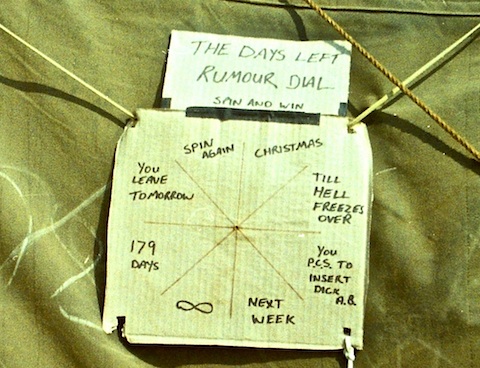 THE DAYS LEFT
RUMOUR DIAL
SPIN AND WIN
SPIN
AGAIN
CHRISTMAS
TILL
HELL
FREEZES
OVER
YOU
P.C.S. TO
INSERT
DICK
A.B.
NEXT
WEEK
∞
179
DAYS
YOU
LEAVE
TOMORROW